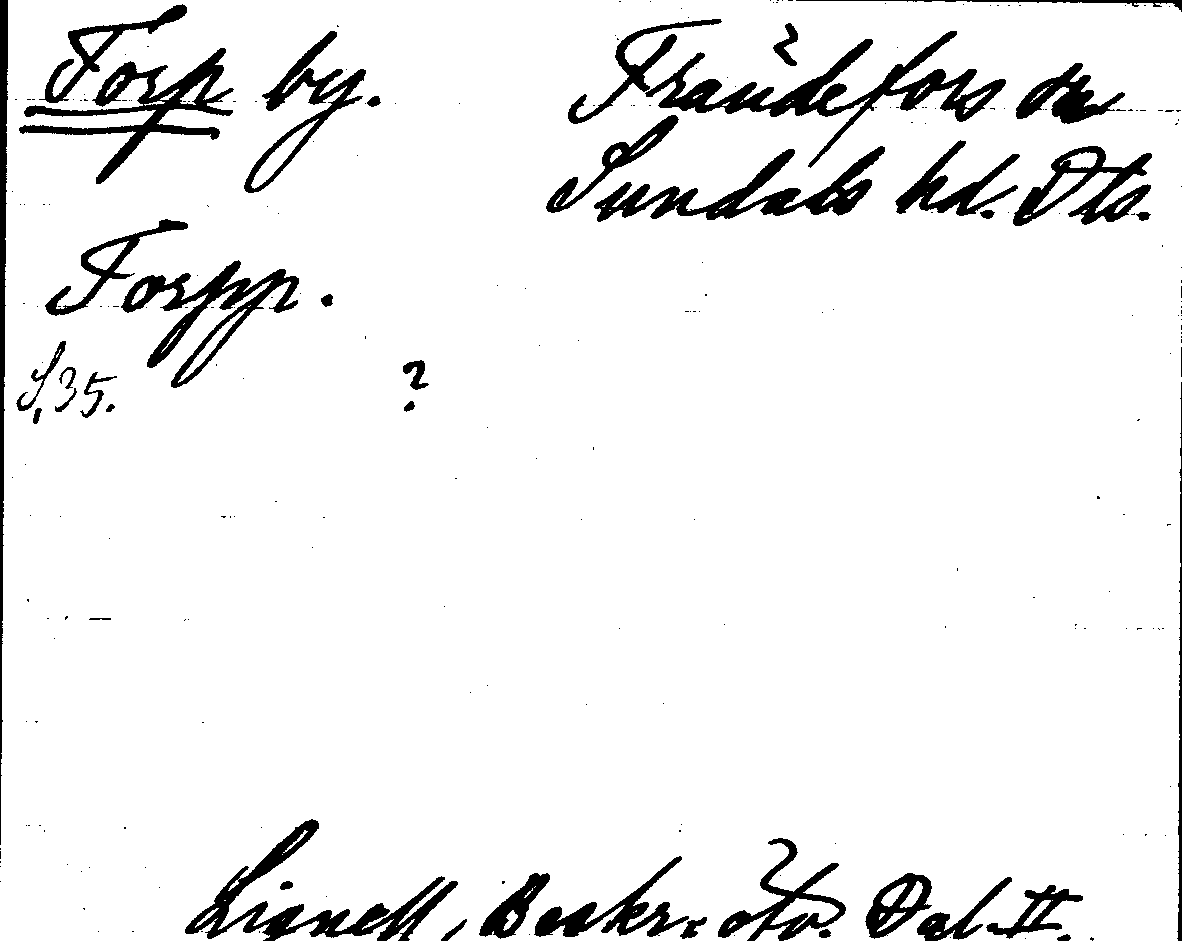 Torp by. Frändefors sn
Sundals hd. Dls.
Torpp.
S. 35. ?
Lignell, Beskr. öfv. Dal. II.